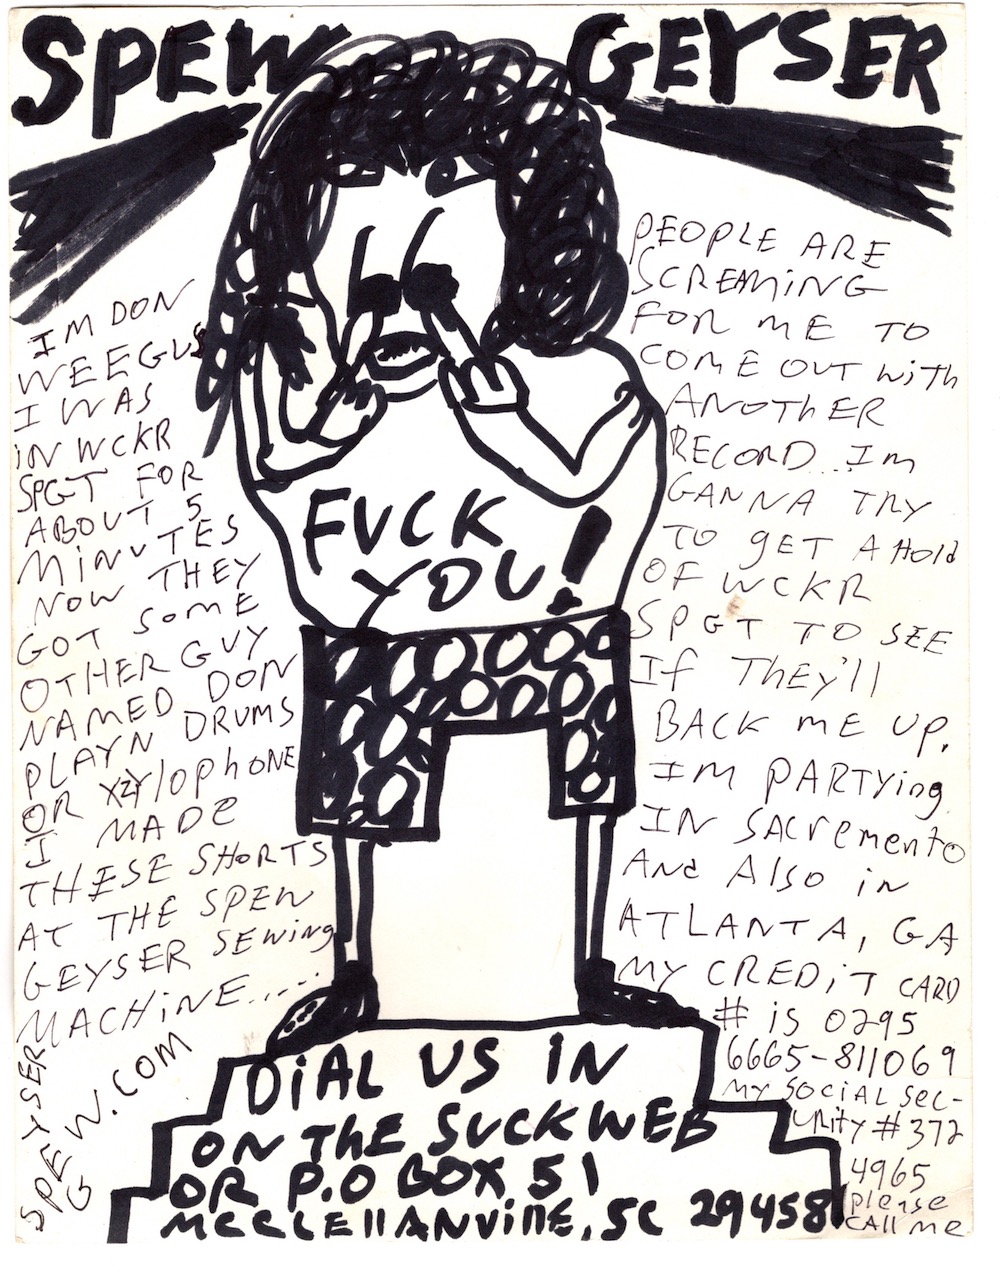 SPEW GEYSER
IM DON
WEEGUS
I WAS
IN WCKR
SPGT FOR
ABOUT 5
MINUTES
NOW THEY
GOT SOME
OTHER GUY
NAMED DON
PLAYN DRUMS
OR XZYlOphONE
I MADE
THESE SHORTS
AT THE SPEW
GEYSER SEWing
MACHiNE....
SPEW
GEYSER
.COM
FUCK
YOU!
PEOPLE ARE
SCREAMiNG
FOR ME TO
COME OUT with
ANOThER
RECORD... Im
GANNA TRY
TO gET A HOld
OF WCKR
SPGT TO SEE
If THEy'll
BACK ME UP.
IM PARTYing
IN SACremento
And Also in
ATLANTA, GA
MY CREDiT CARD
# iS 0295
6665-811069
MY SOCiAL SEC-
URity # 372
4965
please
CAll me
DiAL US IN
ON THE SUCKWEB
OR P.O BOX 51
MCCLEllANVillE, SC 29458